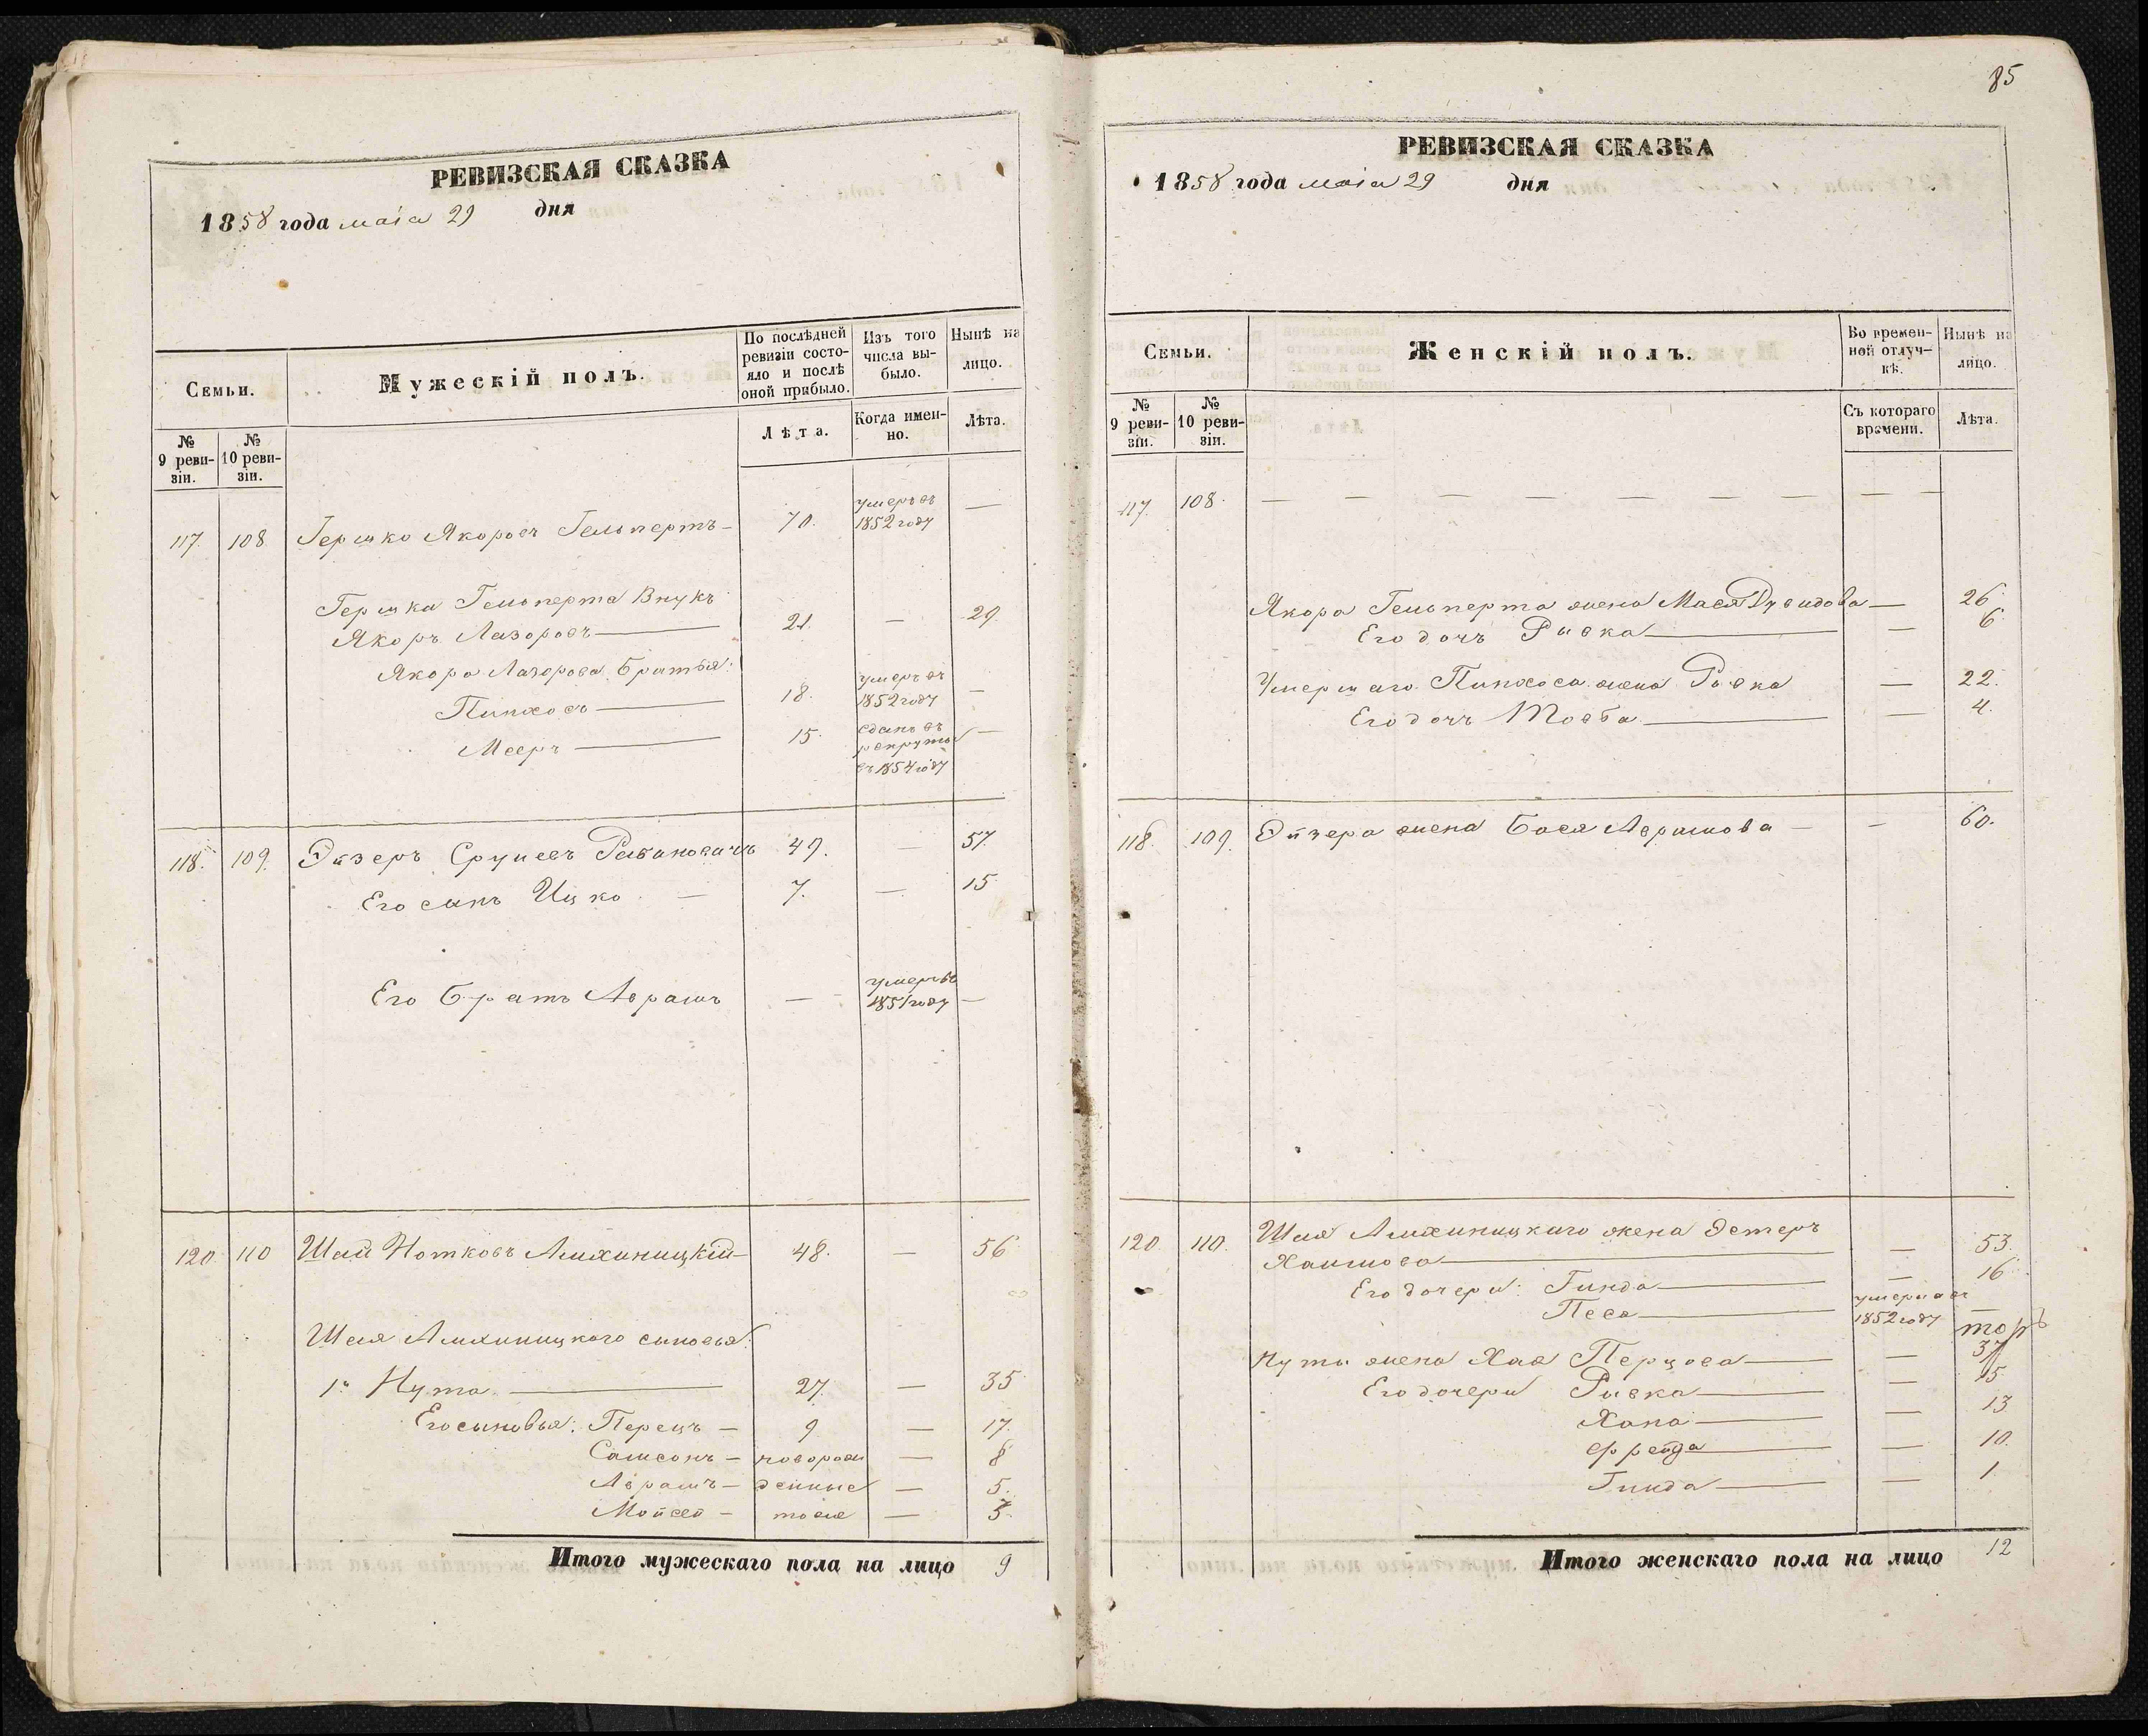 РЕВИЗСКАЯ СКАЗКА
1858 года маіа 29 дня
Семьи.
Мужескій полъ.
По послѣдней ревизіи состо-
яло и послѣ
оной прибыло.
Изъ того
числа вы-
было.
Нынѣ на
лицо.
№
9 реви-
зіи.
№
10 реви-
зіи.
Лѣта.
Когда имен-
но.
Лѣта.
117. 108. Гершко Якоровъ Гельпертъ — 70. умеръ въ 1852 году —
Гершка Гельперта Внукъ
Якоръ Лазоровъ — 21. — 29.
Якора Лазорова Братья:
Пинхосъ — 18. умеръ въ 1852 году —
Мееръ — 15. сданъ въ рекруты въ 1854 году —
118. 109. Эйзеръ Сруневъ Рабиновичъ 49. — 57.
Его сынъ Ицко — 7. — 15.
Его Братъ Аврамъ — умеръ въ 1851 году —
120. 110 Шая Нотковъ — 48. — 56
Шая сыновья:
1й Нута — 27. — 35
Его сыновья: Перецъ — 9 — 17.
Самсонъ — новорож — 8
Аврамъ — денные — 5.
Мойсей — после — 3.
Итого мужескаго пола на лицо 9
85
РЕВИЗСКАЯ СКАЗКА
1858 года маіа 29 дня
Семьи.
Женскій полъ.
Во времен-
ной отлуч-
кѣ.
Нынѣ на
лицо.
№
9 реви-
зіи.
№
10 реви-
зіи.
Съ котораго
времени.
Лѣта.
117. 108. — — — — — — — — — —
Якора Гельперта жена Мася Дувидова — 26.
Его дочь Рывка — — 6.
Умершаго Пинхоса жена Рывка — 22.
Его дочь Товба — — 4.
118. 109. Эйзера жена Бася Аврамова — — 60.
120. 110. Шая жена Эстеръ
Хаимова — — 53.
Его дочери: Гинда — — 16.
Песа — умерла въ 1852 году —
Нуты жена Хая Перцова — — 37
Его дочери Рывка — — 15
Хана — — 13
Фрейда — — 10.
Гинда — — 1
Итого женскаго пола на лицо 12